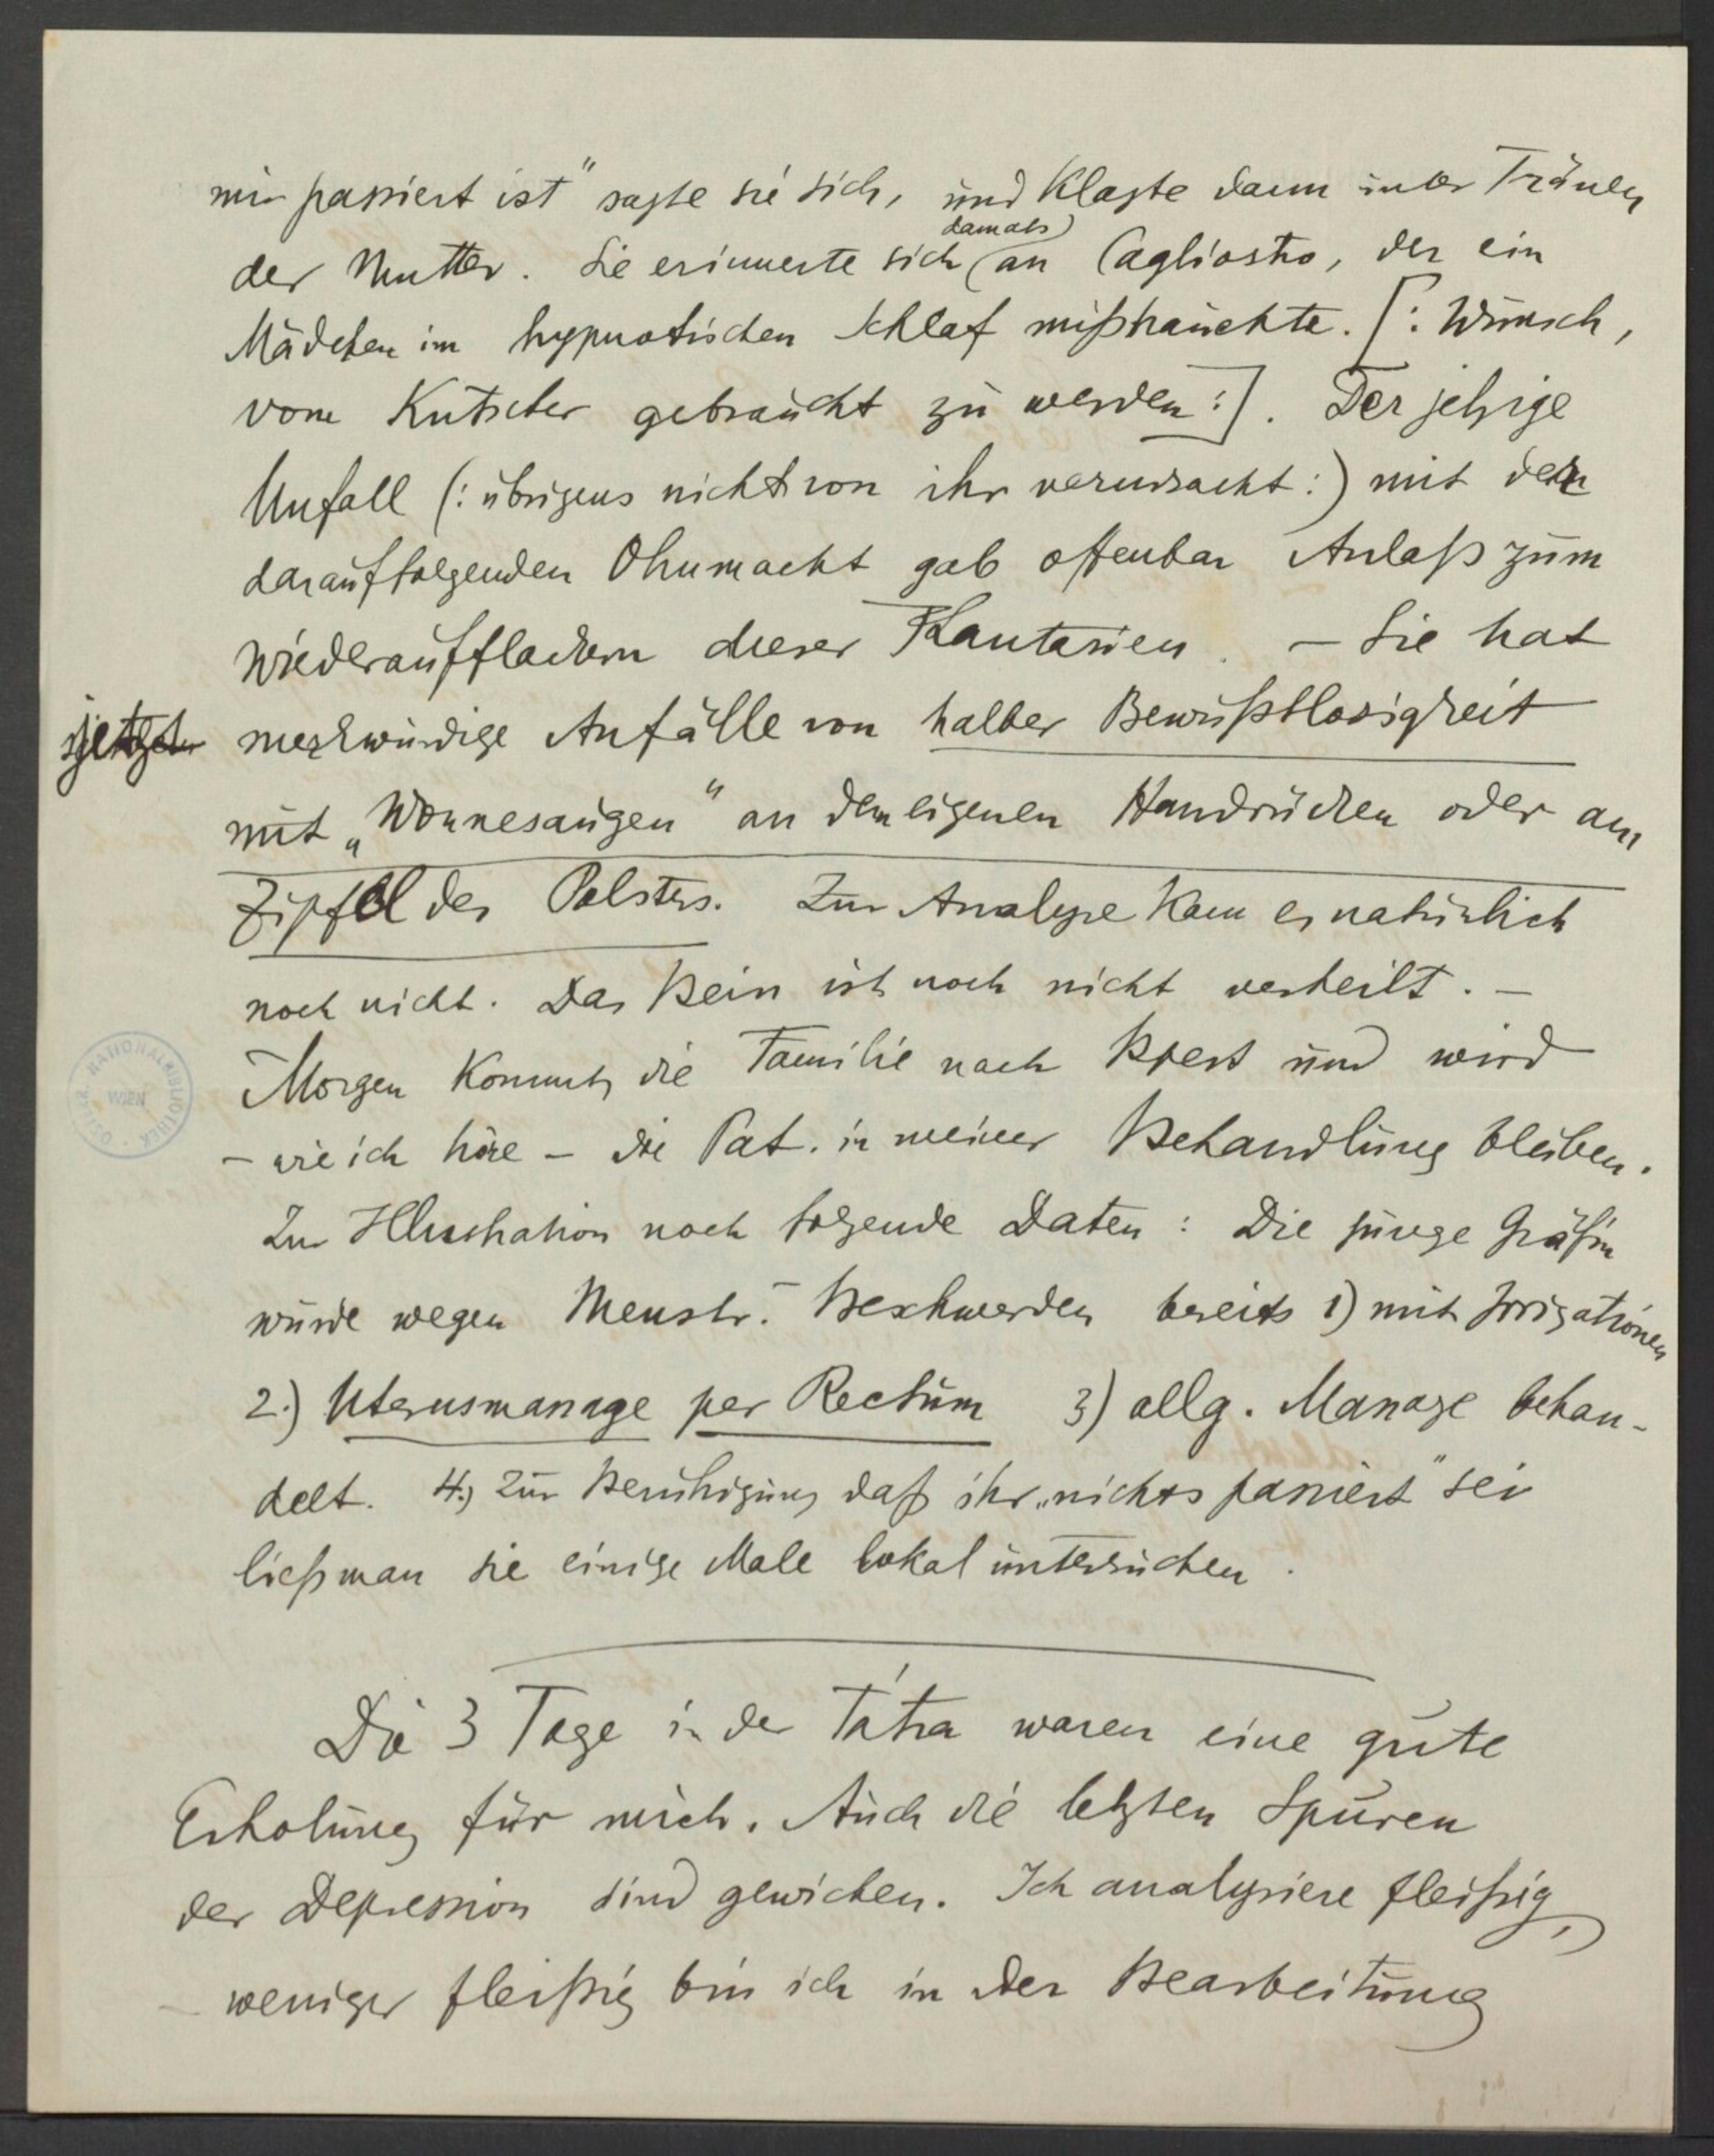 mir passiert ist" sagte sie sich, und klagte dann unter Tränen
damals
der Mutter. Sie erinnerte sich an Cagliostro, der ein
Mädchen im hypnotischen Schlaf mißbrauchte. [: Wunsch,
vom Kutscher gebraucht zu werden :]. Der jetzige
Unfall (: übrigens nicht von ihr verursacht :) mit der
darauffolgenden Ohnmacht gab offenbar Anlaß zum
Wiederaufflackern dieser Fantasien. – Sie hat
jetzt merkwürdige Anfälle von halber Bewußtlosigkeit
mit „Wonnesaugen" an dem eigenen Handrücken oder am
Zipfel des Polsters. Zur Analyse kam es natürlich
noch nicht. Das Bein ist noch nicht verheilt. –
Morgen kommt die Familie nach Bpest und wird
– wie ich höre – die Pat. in meiner Behandlung bleiben.
Zur Illustration noch folgende Daten: Die junge Gräfin
wurde wegen Menstr.-Beschwerden bereits 1) mit Irrigationen
2.) Uterusmassage per Rectum 3) allg. Massage behan-
delt. 4.) Zur Beruhigung daß ihr „nichts passiert" sei
ließ man sie einige Male lokal untersuchen.
Die 3 Tage in der Tátra waren eine gute
Erholung für mich. Auch die letzten Spuren
der Depression sind gewichen. Ich analysiere fleißig,
– weniger fleißig bin ich in der Bearbeitung
ÖSTERR. NATIONALBIBLIOTHEK
WIEN